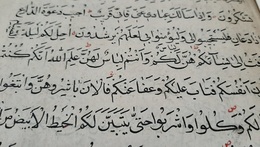 تشكرون وإذا سألك عبادي عني فإني قريب أجيب دعوة الداع
دعان فليستجيبوا لي وليؤمنوا بي لعلهم يرشدون أحل لكم ليلة
إلى نسائكم هن لباس لكم وأنتم لباس لهن علم الله أنكم كنتم
أنفسكم فتاب عليكم وعفا عنكم فالآن باشروهن وابتغوا
لكم وكلوا واشربوا حتى يتبين لكم الخيط الأبيض من